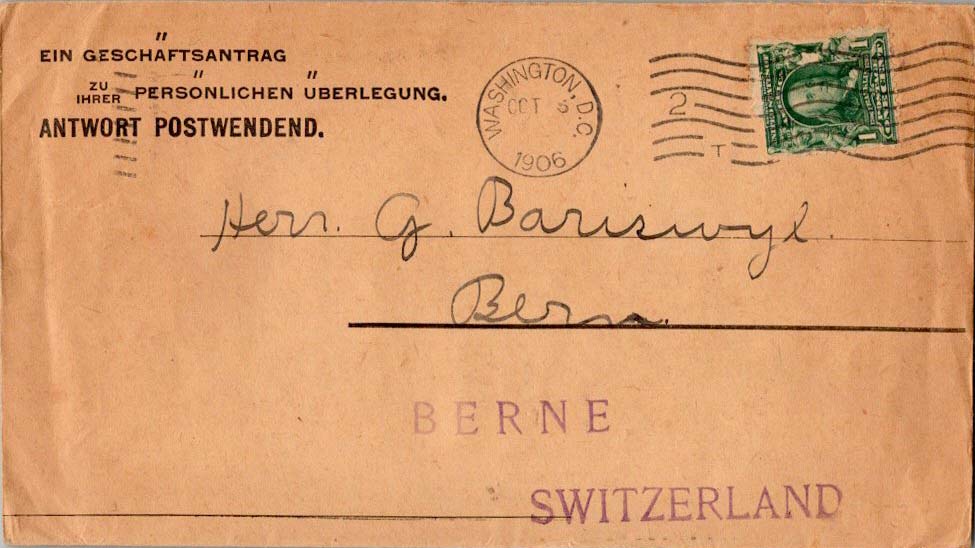 EIN GESCHÄFTSANTRAG
ZU IHRER PERSÖNLICHEN ÜBERLEGUNG.
ANTWORT POSTWENDEND.
WASHINGTON, D.C.
OCT 5
1906
2
T
1 1
Herr. G. Bariswyl.
Bern.
BERNE
SWITZERLAND